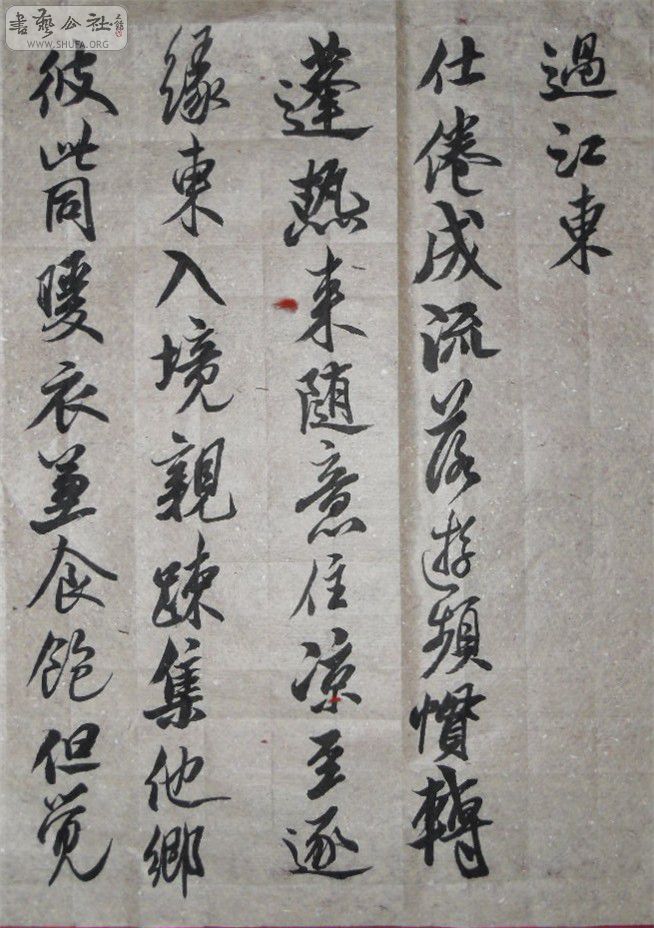 過江東
仕倦成流落遊頻慣轉
蓬熱来随意住凉至逐
緣東入境親踈集他鄉
彼此同暖衣兼食飽但覚
書藝公社
WWW.SHUFA.ORG